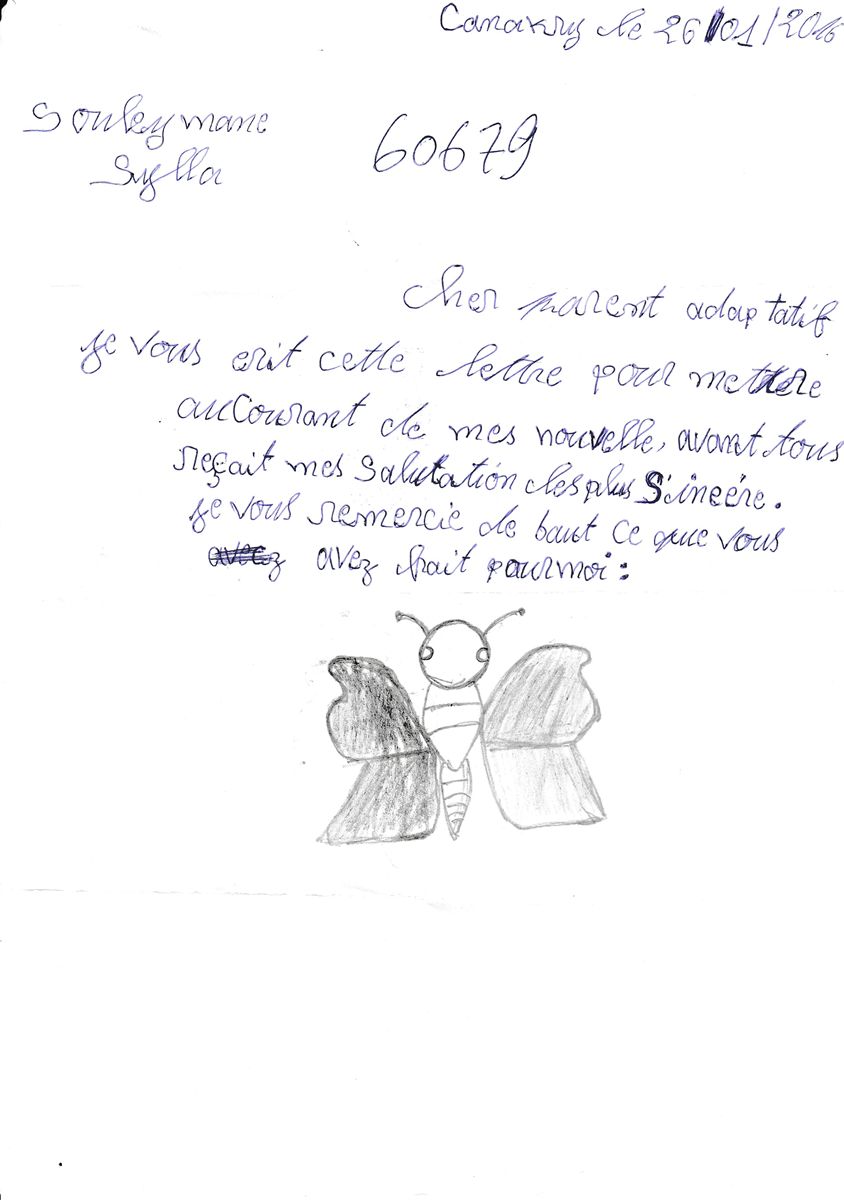 Canakry le 26/01/2016
Souleymane
Sylla
60679
Cher parent adaptatif
je vous erit cette lettre pour mettre
auCourant de mes nouvelle, avant tous
reçait mes Salutation des plus Sincère.
je vous remercie de baut ce que vous
avez avez frait pourmoi :